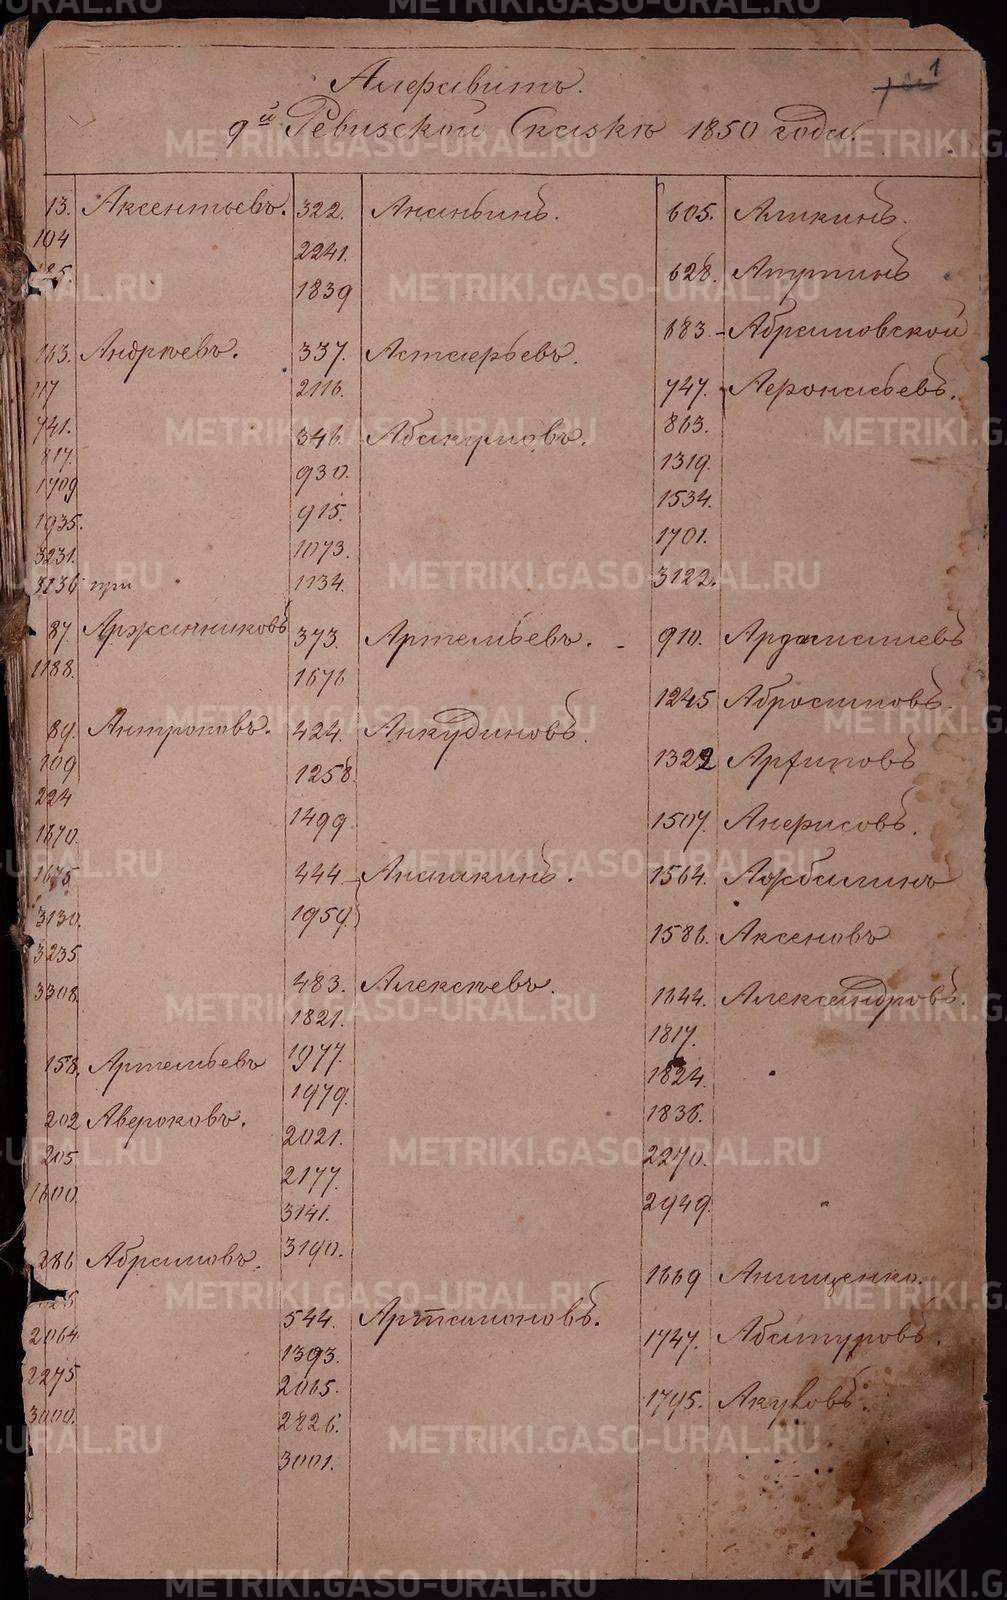 1
Алфавитъ.
9й Ревизской Сказкѣ 1850 года.
13. Аксентьевъ.
104
163. Андреевъ.
117
741.
817.
1709
1935.
3231.
3236 при
87. Аржанниковъ
1188.
89. Антроповъ.
109
224
1670.
1675
3130.
3235
3308.
158. Артемьевъ
202 Авероковъ.
205
1600
286 Абрамовъ.
2064
2275
3000.
322. Ананьинъ.
2241.
1839
337. Астафьевъ.
2116.
346. Абакумовъ.
930.
915.
1073.
1134.
373. Артемьевъ.
1676
424. Анкудиновъ.
1258.
1499
444. Анашкинъ.
1959.
483. Алексѣевъ.
1821.
1977.
1979.
2021.
2177.
3141.
3190.
544. Артамоновъ.
1393.
2065.
2826.
3001.
605. Аликинъ.
628. Апутинъ
683. Абрамовской
747. Афонасьевъ.
863.
1319.
1534.
1701.
3122.
910. Ардамашевъ
1245 Абросимовъ.
1322 Архиповъ
1507. Анфисовъ.
1564. Ахбалинъ
1586. Аксеновъ
1644. Александровъ.
1817.
1824.
1836.
2270.
2949.
1669 Анищенко.
1747. Абатуровъ.
1795. Акуловъ.
METRIKI.GASO-URAL.RU